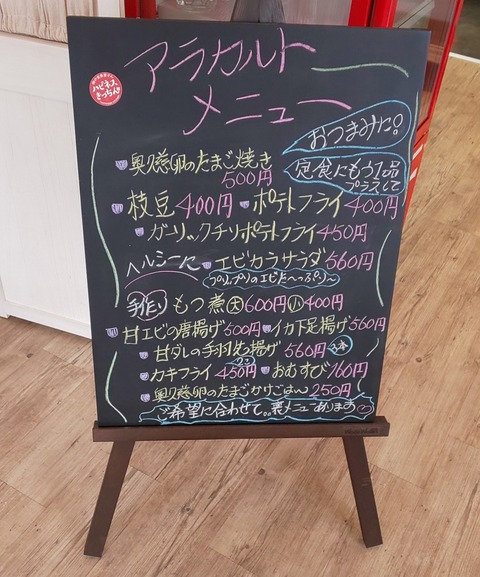 アラカルト
メニュー
ハピネス
きっちん
おつまみに!
奥久慈卵のたまご焼き
500円
定食にもう1品
プラスして
枝豆400円 ポテトフライ400円
ガーリックチリポテトフライ450円
ヘルシーに エビカラサラダ560円
プリップリのエビた〜っぷり〜
手作り もつ煮 大600円 小400円
甘エビの唐揚げ500円 イカ下足揚げ560円
甘ダレの手羽先揚げ 560円 2本
カキフライ 450円 おむすび160円
奥久慈卵のたまごかけごはん250円
ご希望に合わせて。。裏メニューあります♡